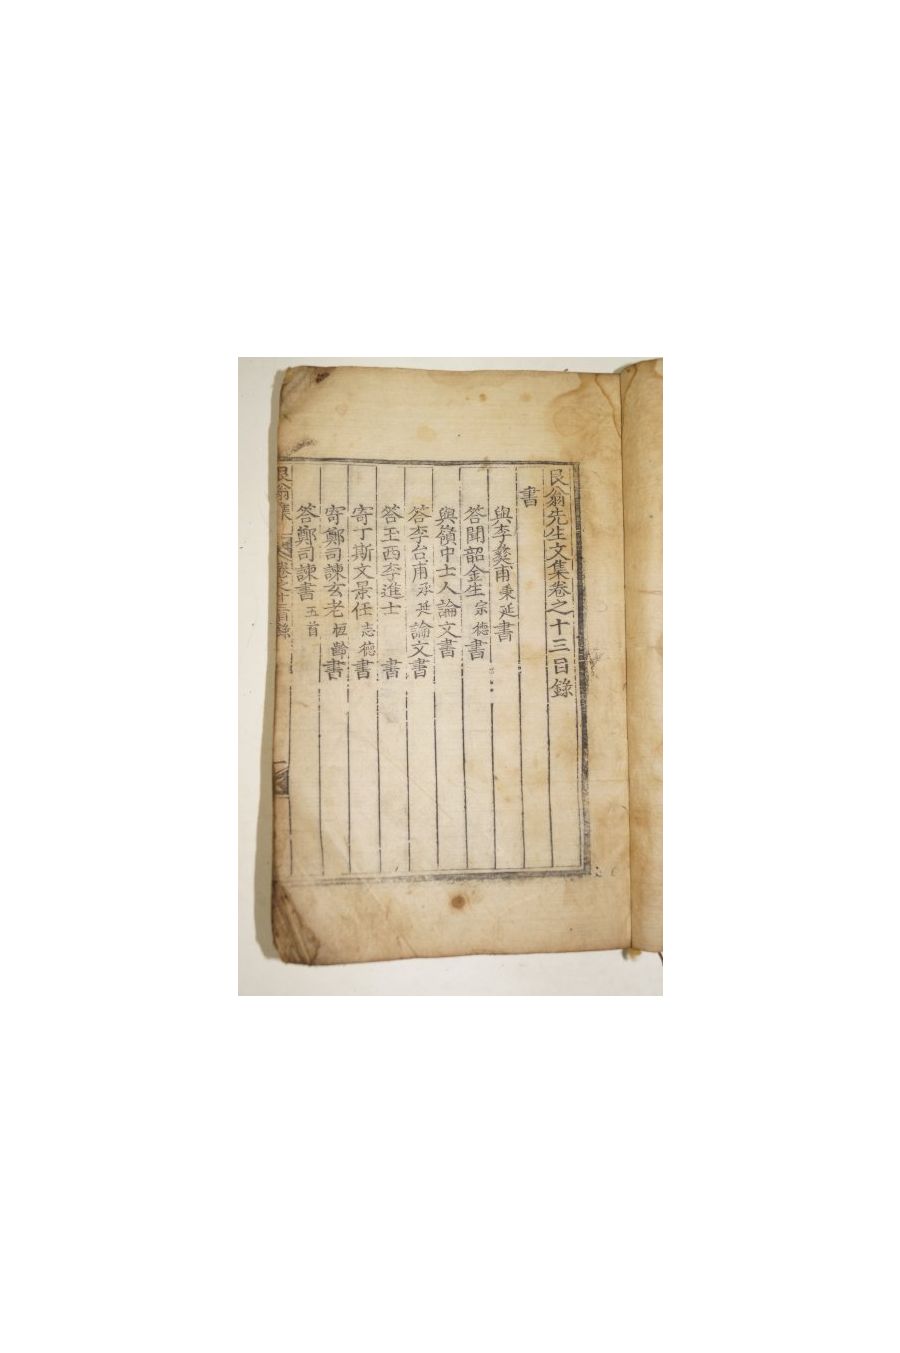 艮翁先生文集卷之十三目錄
書
與李奬甫秉延書
答聞韶金生宗德書
與嶺中士人論文書
答李台甫承延論文書
答玉西李進士書
寄丁斯文景任志德書
寄鄭司諫玄老恒齡書
答鄭司諫書五首
艮翁集 卷之十三目錄